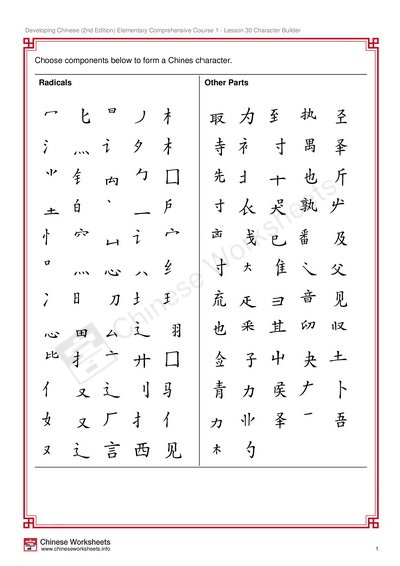 Developing Chinese (2nd Edition) Elementary Comprehensive Course 1 - Lesson 30 Character Builder
Choose components below to form a Chines character.
Radicals Other Parts
冖 匕 日 丿 木 取 为 至 执 圣
氵 灬 讠 夕 木 寺 礻 寸 禺
钅 勹 囗 先 十 也 斤
土 白 丶 一 户 寸 衣 吴 孰
忄 穴 凵 讠 宀 戋 已 番 及
口 灬 心 八 纟 寸 大 隹 乀 父
氵 日 刀 土 王 㐬 疋 彐 音 见
心 田 厶 辶 羽 也 采 其 卬 収
比 扌 亠 廾 囗 佥 子 中 夬 土
亻 又 辶 刂 马 青 力 卜
女 又 厂 扌 亻 力 业 吾
又 辶 言 西 见 木 勺
Chinese Worksheets
Chinese Worksheets
www.chineseworksheets.info 1